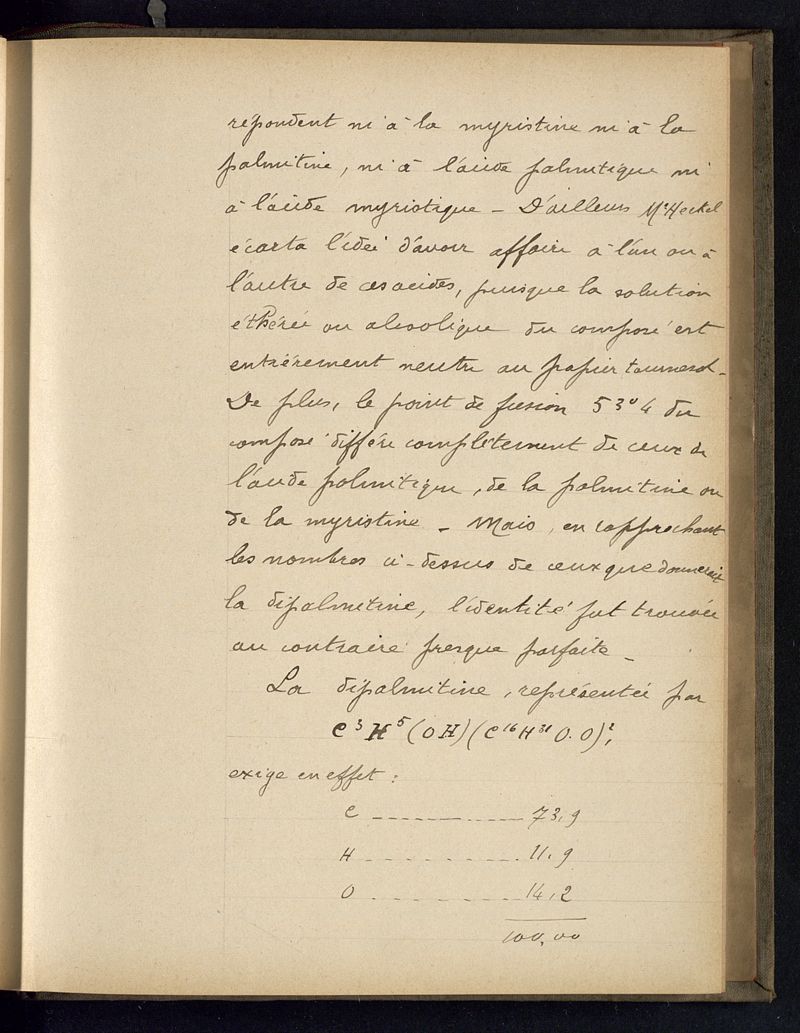 répondent ni à la myristine ni à la
palmitine, ni à l'acide palmitique ni
à l'acide myristique – D'ailleurs Mr Heckel
écarta l'idée d'avoir affaire à l'un ou à
l'autre de ces acides, puisque la solution
éthérée ou alcoolique du composé est
entièrement neutre au papier tournesol –
De plus, le point de fusion 53°4 du
composé diffère complètement de ceux de
l'acide palmitique, de la palmitine ou
de la myristine – Mais, en rapprochant
les nombres ci-dessus de ceux que donnerait
la dipalmitine, l'identité fut trouvée
au contraire presque parfaite –
La dipalmitine, représentée par
C³H⁵(OH)(C¹⁶H³¹O.O)²,
exige en effet :
C ------------ 73,9
H ------------ 11,9
O ------------ 14,2
100,00